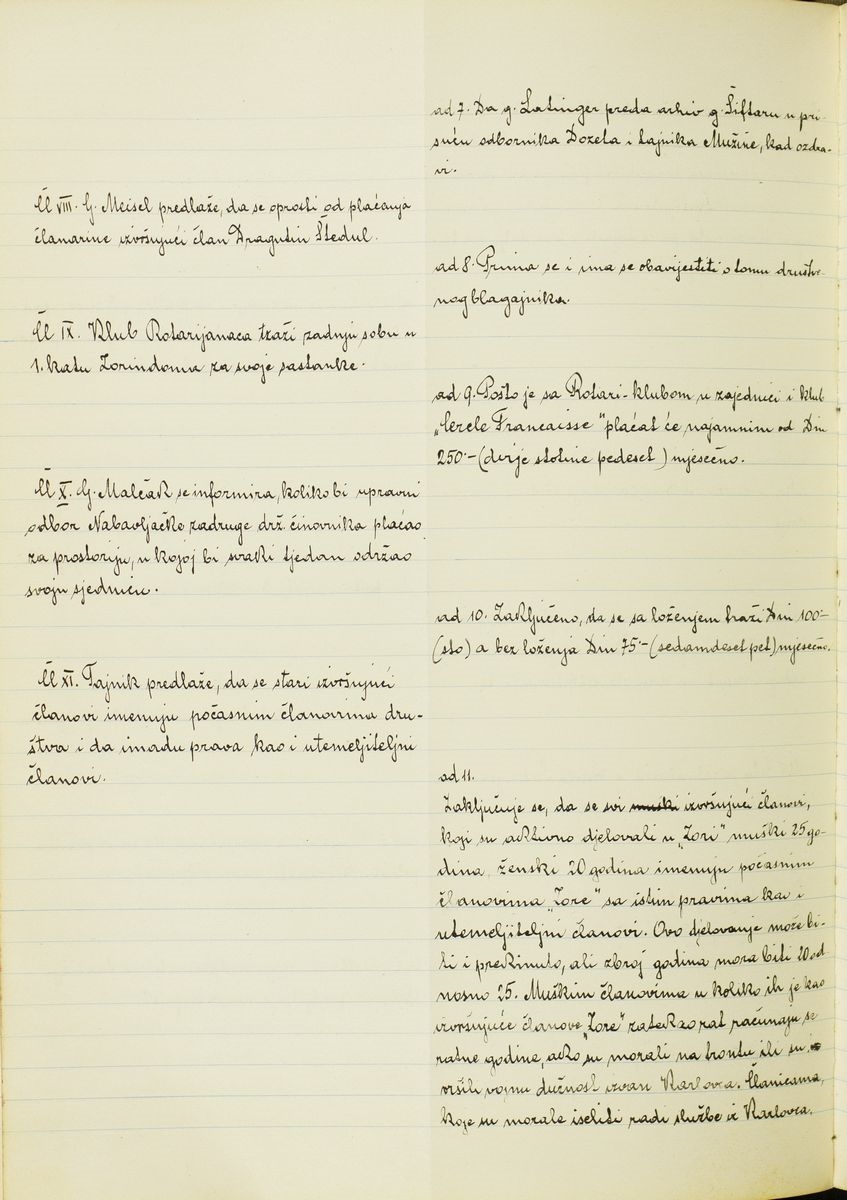 Čl VIII. G. Meisel predlaže, da se oprosti od plaćanja
članarine izvršujući član Dragutin Štedul.
Čl IX. Klub Rotarijanaca traži zadnju sobu u
1. katu Zorindoma za svoje sastanke.
Čl X. G. Malčak se informira, koliko bi upravni
odbor Nabavljačke zadruge drž. činovnika plaćao
za prostoriju, u kojoj bi svaki tjedan održao
svoju sjednicu.
Čl XI. Tajnik predlaže, da se stari izvršujući
članovi imenuju počasnim članovima dru-
štva i da imadu prava kao i utemeljiteljni
članovi.
ad 7. Da g. Latinger preda arhiv g. Šiftaru u pri-
suću odbornika Dozeta i tajnika Mužine, kad ozdra-
vi.
ad 8. Prima se i ima se obavijestiti o tomu društve-
nog blagajnika.
ad 9. Pošto je sa Rotari-klubom u zajednici i klub
„Cercle Francaisse" plaćat će najamninu od Din
250·- (dvije stotine pedeset) mjesečno.
ad 10. Zaključeno, da se sa loženjem traži Din 100·-
(sto) a bez loženja Din 75·- (sedamdeset pet) mjesečno.
ad 11.
Zaključuje se, da se svi muški izvršujući članovi,
koji su aktivno djelovali u „Zori" muški 25 go-
dina, ženski 20 godina imenuju počasnim
članovima „Zore" sa istim pravima kao i
utemeljiteljni članovi. Ovo djelovanje može bi-
ti i prekinuto, ali zbroj godina mora biti 20 od-
nosno 25. Muškim članovima u koliko ih je kao
izvršujuće članove „Zore" zatekao rat računaju se
ratne godine, ako su morali na frontu ili su
vršili vojnu dužnost izvan Karlovca. Članicama,
koje su morale iseliti radi službe iz Karlovca.